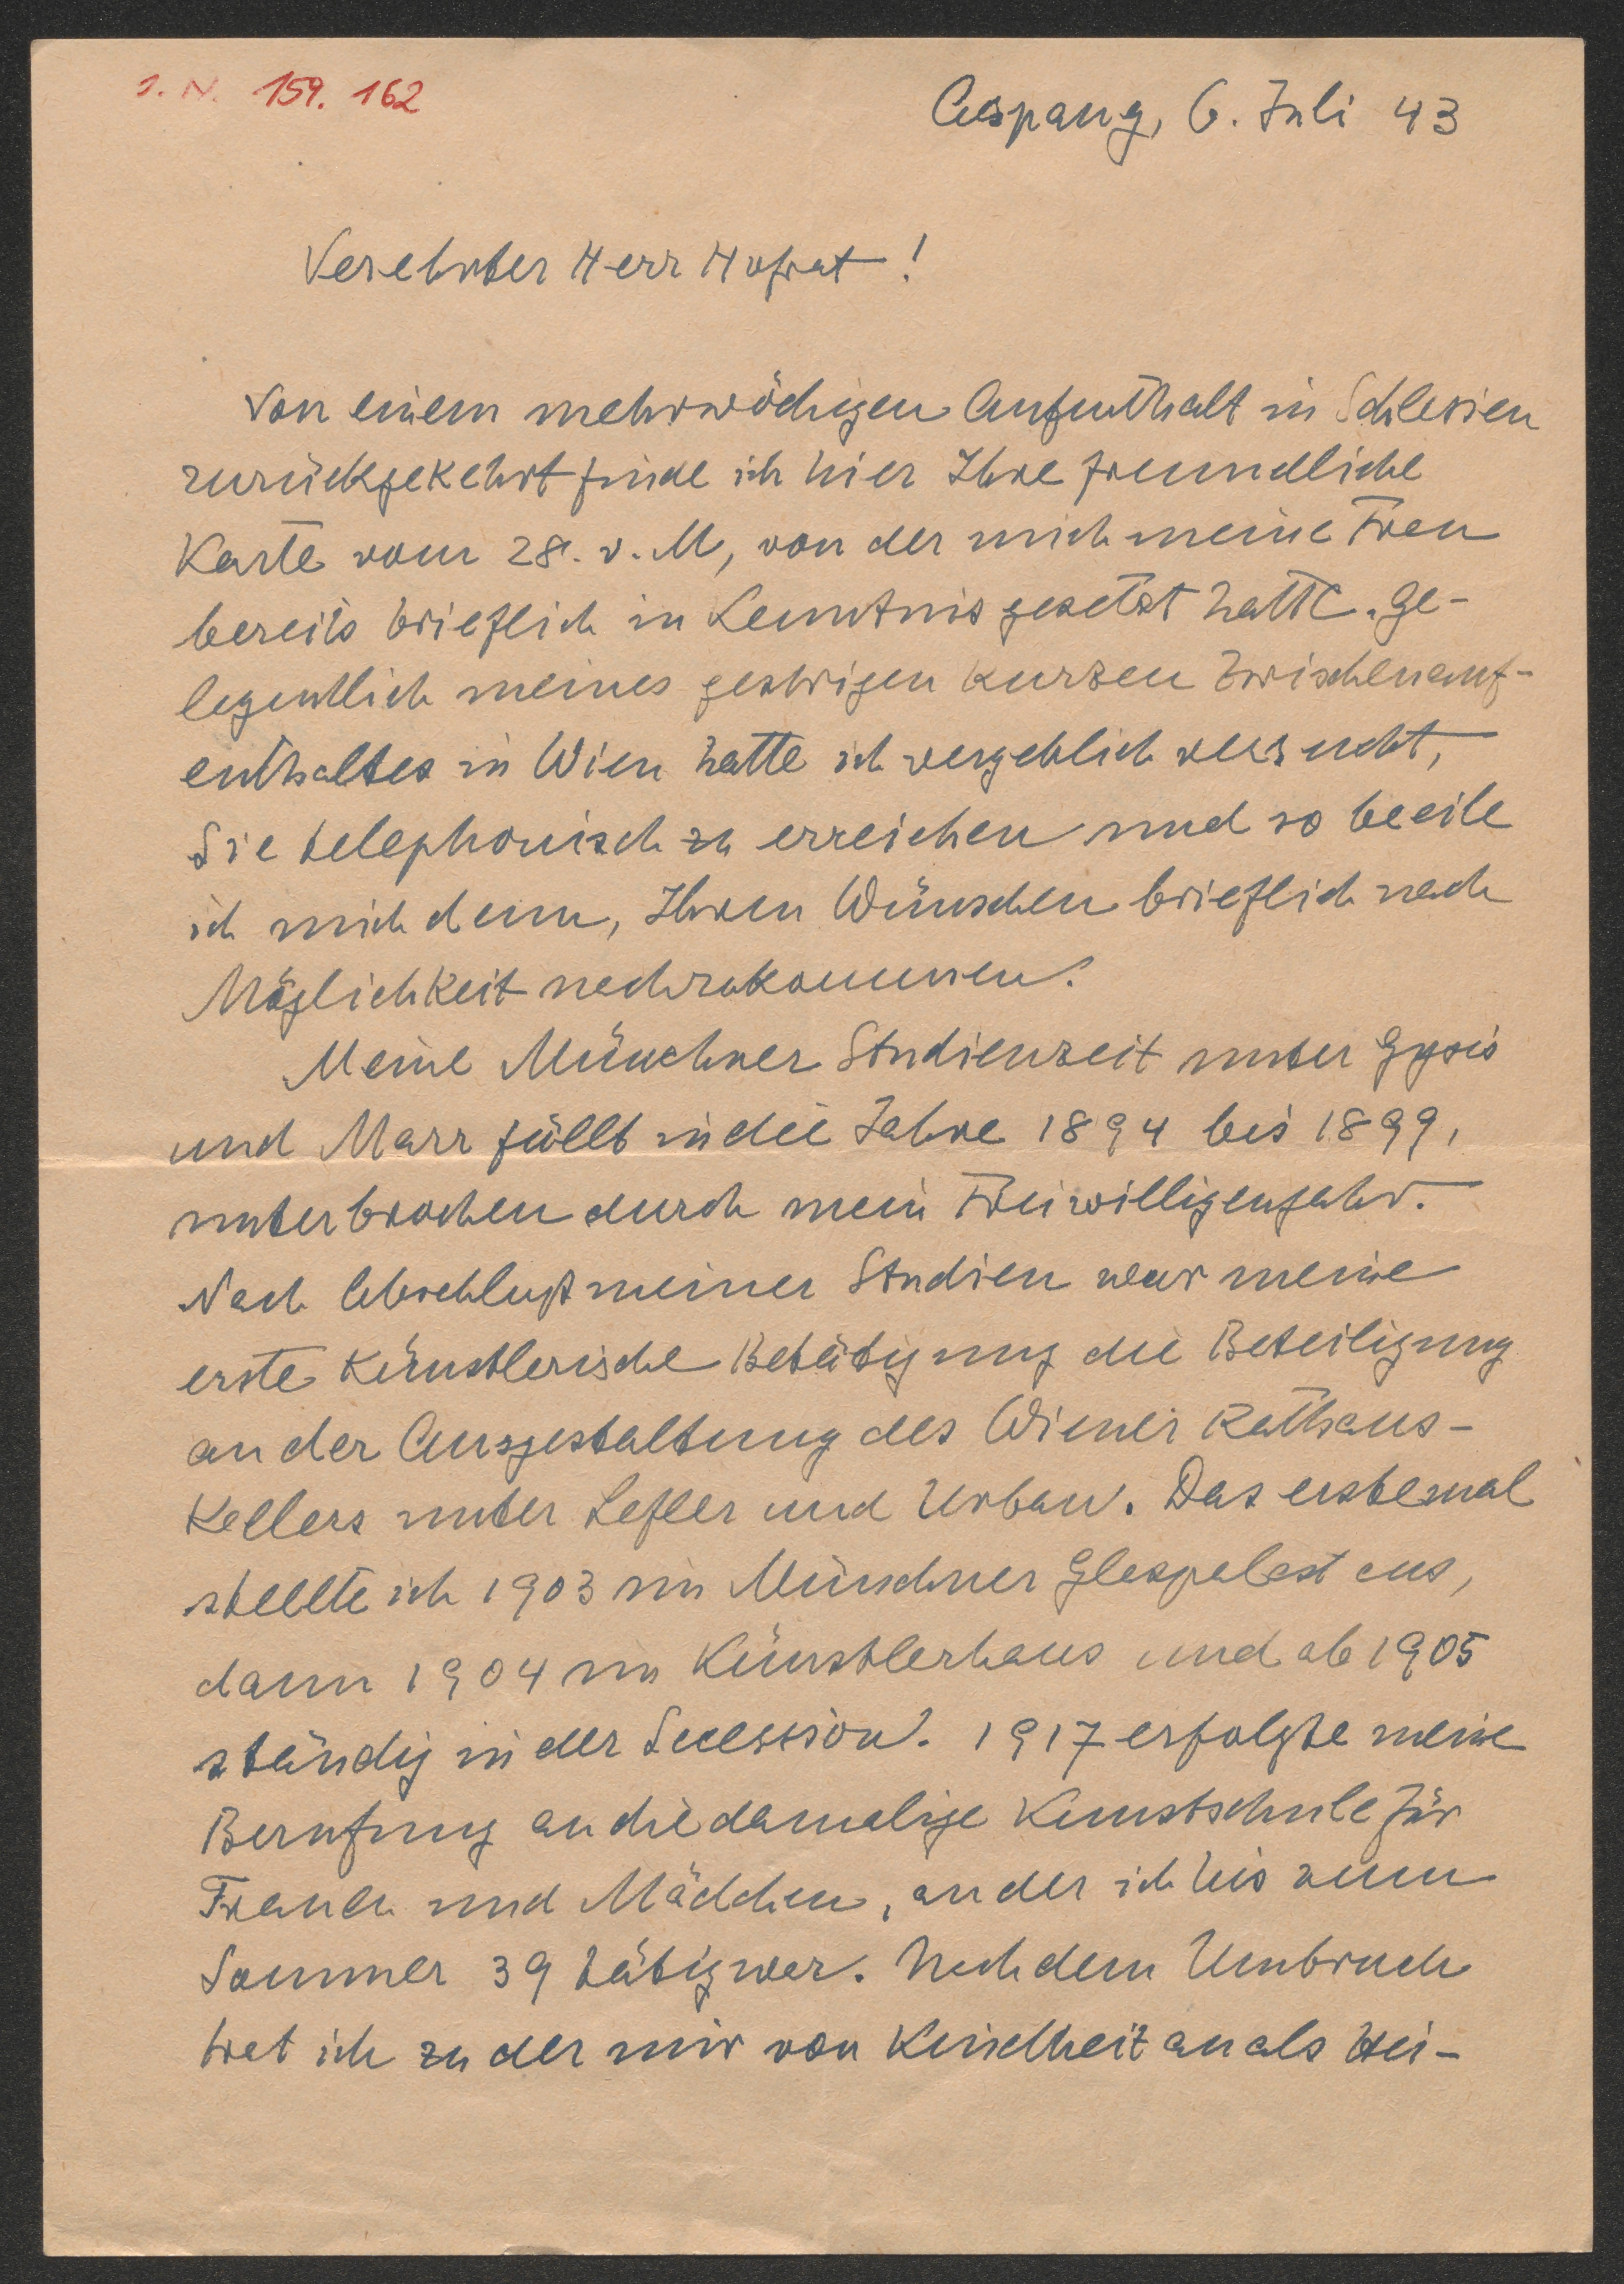 I. N. 159.162
Aspang, 6. Juli 43
Verehrter Herr Hofrat!
Von einem mehrwöchigen Aufenthalt in Schlesien
zurückgekehrt finde ich hier Ihre freundliche
Karte vom 28. v. M, von der mich meine Frau
bereits brieflich in Kenntnis gesetzt hatte. Ge-
legentlich meines gestrigen kurzen Zwischenauf-
enthaltes in Wien hatte ich vergeblich versucht,
Sie telephonisch zu erreichen und so beeile
ich mich denn, Ihren Wünschen brieflich nach
Möglichkeit nachzukommen.
Meine Münchner Studienzeit unter Gysis
und Marr fällt in die Jahre 1894 bis 1899,
unterbrochen durch mein Freiwilligenjahr.
Nach Abschluß meiner Studien war meine
erste künstlerische Betätigung die Beteiligung
an der Ausgestaltung des Wiener Rathaus-
Kellers unter Lefler und Urban. Das erstemal
stellte ich 1903 im Münchner Glaspalast aus,
dann 1904 im Künstlerhaus und ab 1905
ständig in der Secession. 1917 erfolgte meine
Berufung an die damalige Kunstschule für
Frauen und Mädchen, an der ich bis zum
Sommer 39 tätig war. Nach dem Umbruch
trat ich zu der mir von Kindheit an als Hei-